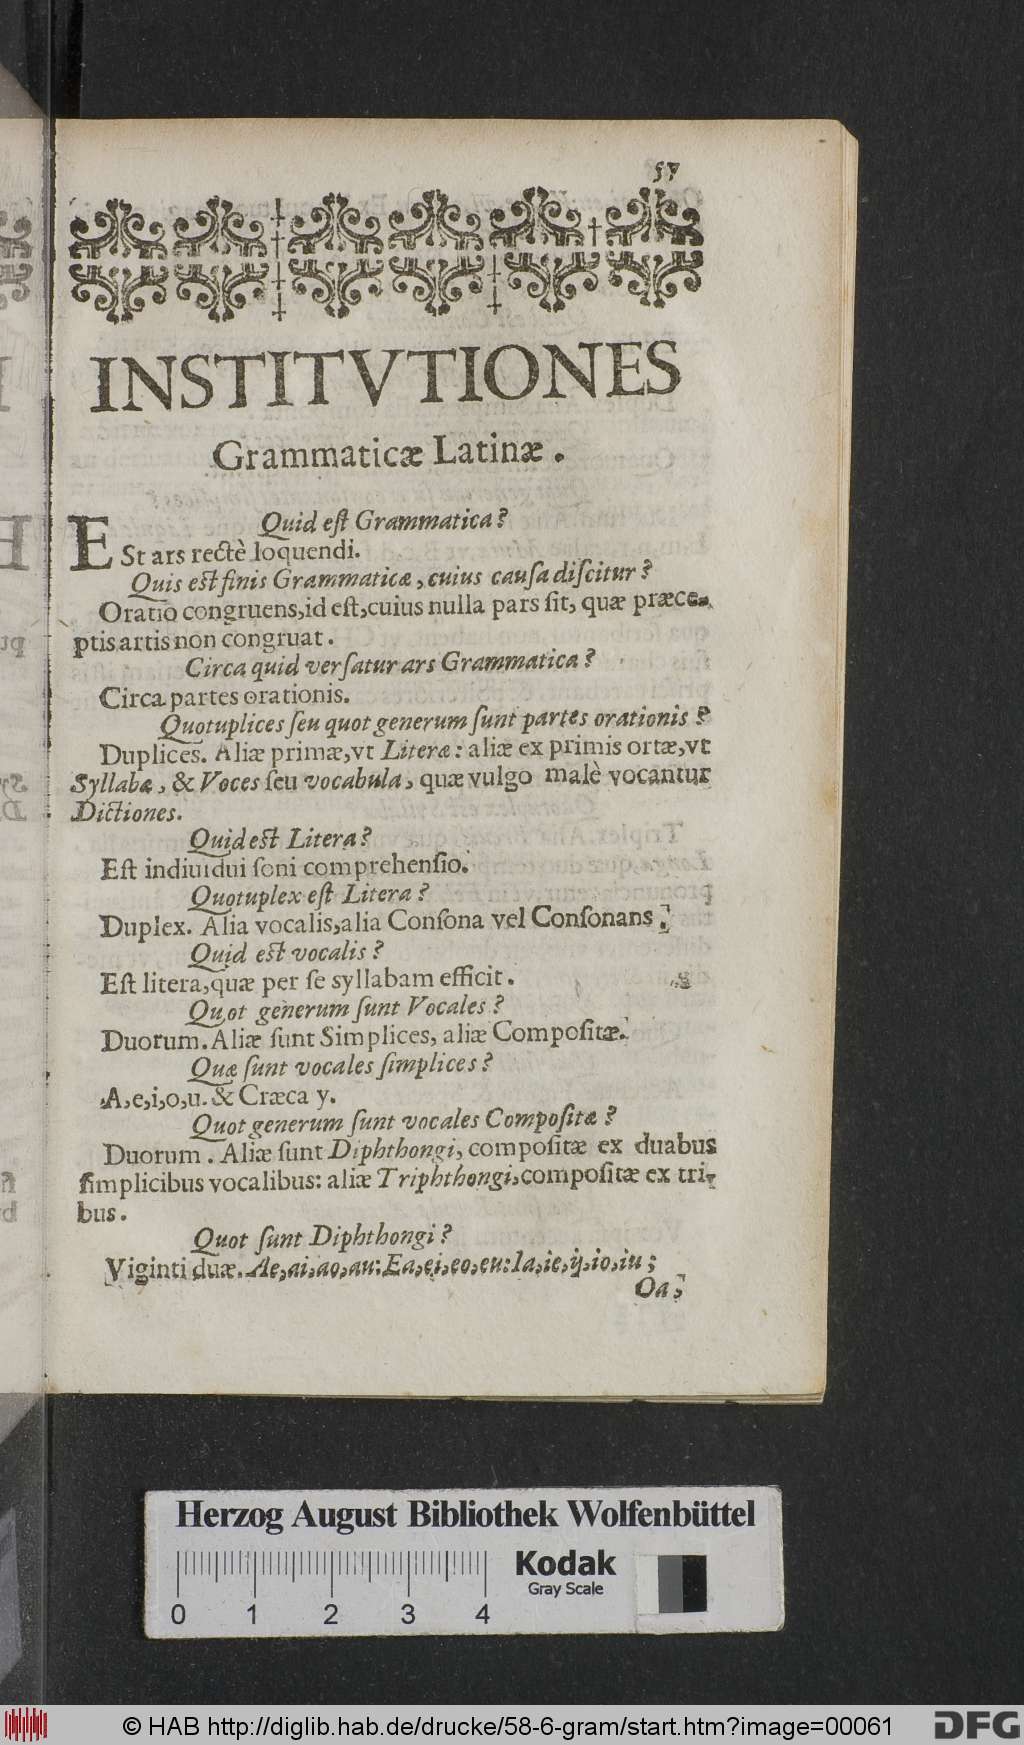 57
INSTITVTIONES
Grammaticæ Latinæ.
Quid eſt Grammatica?
ESt ars rectè loquendi.
Quis eſt finis Grammaticæ, cuius cauſa diſcitur?
Oratio congruens, id eſt, cuius nulla pars ſit, quæ præce-
ptis artis non congruat.
Circa quid verſatur ars Grammatica?
Circa partes orationis.
Quotuplices ſeu quot generum ſunt partes orationis?
Duplices. Aliæ primæ, vt Literæ: aliæ ex primis ortæ, vt
Syllabæ, & Voces ſeu vocabula, quæ vulgo malè vocantur
Dictiones.
Quid eſt Litera?
Eſt indiuidui ſoni comprehenſio.
Quotuplex eſt Litera?
Duplex. Alia vocalis, alia Conſona vel Conſonans.
Quid eſt vocalis?
Eſt litera, quæ per ſe syllabam efficit.
Quot generum ſunt Vocales?
Duorum. Aliæ ſunt Simplices, aliæ Compoſitæ.
Quæ ſunt vocales ſimplices?
A, e, i, o, u. & Cræca y.
Quot generum ſunt vocales Compoſitæ?
Duorum. Aliæ ſunt Diphthongi, compoſitæ ex duabus
ſimplicibus vocalibus: aliæ Triphthongi, compoſitæ ex tri-
bus.
Quot ſunt Diphthongi?
Viginti duæ. Ae, ai, ao, au: Ea, ei, eo, eu: Ia, ie, ij, io, iu;
Oa;
Herzog August Bibliothek Wolfenbüttel
Kodak
Gray Scale
0 1 2 3 4
© HAB http://diglib.hab.de/drucke/58-6-gram/start.htm?image=00061
DFG